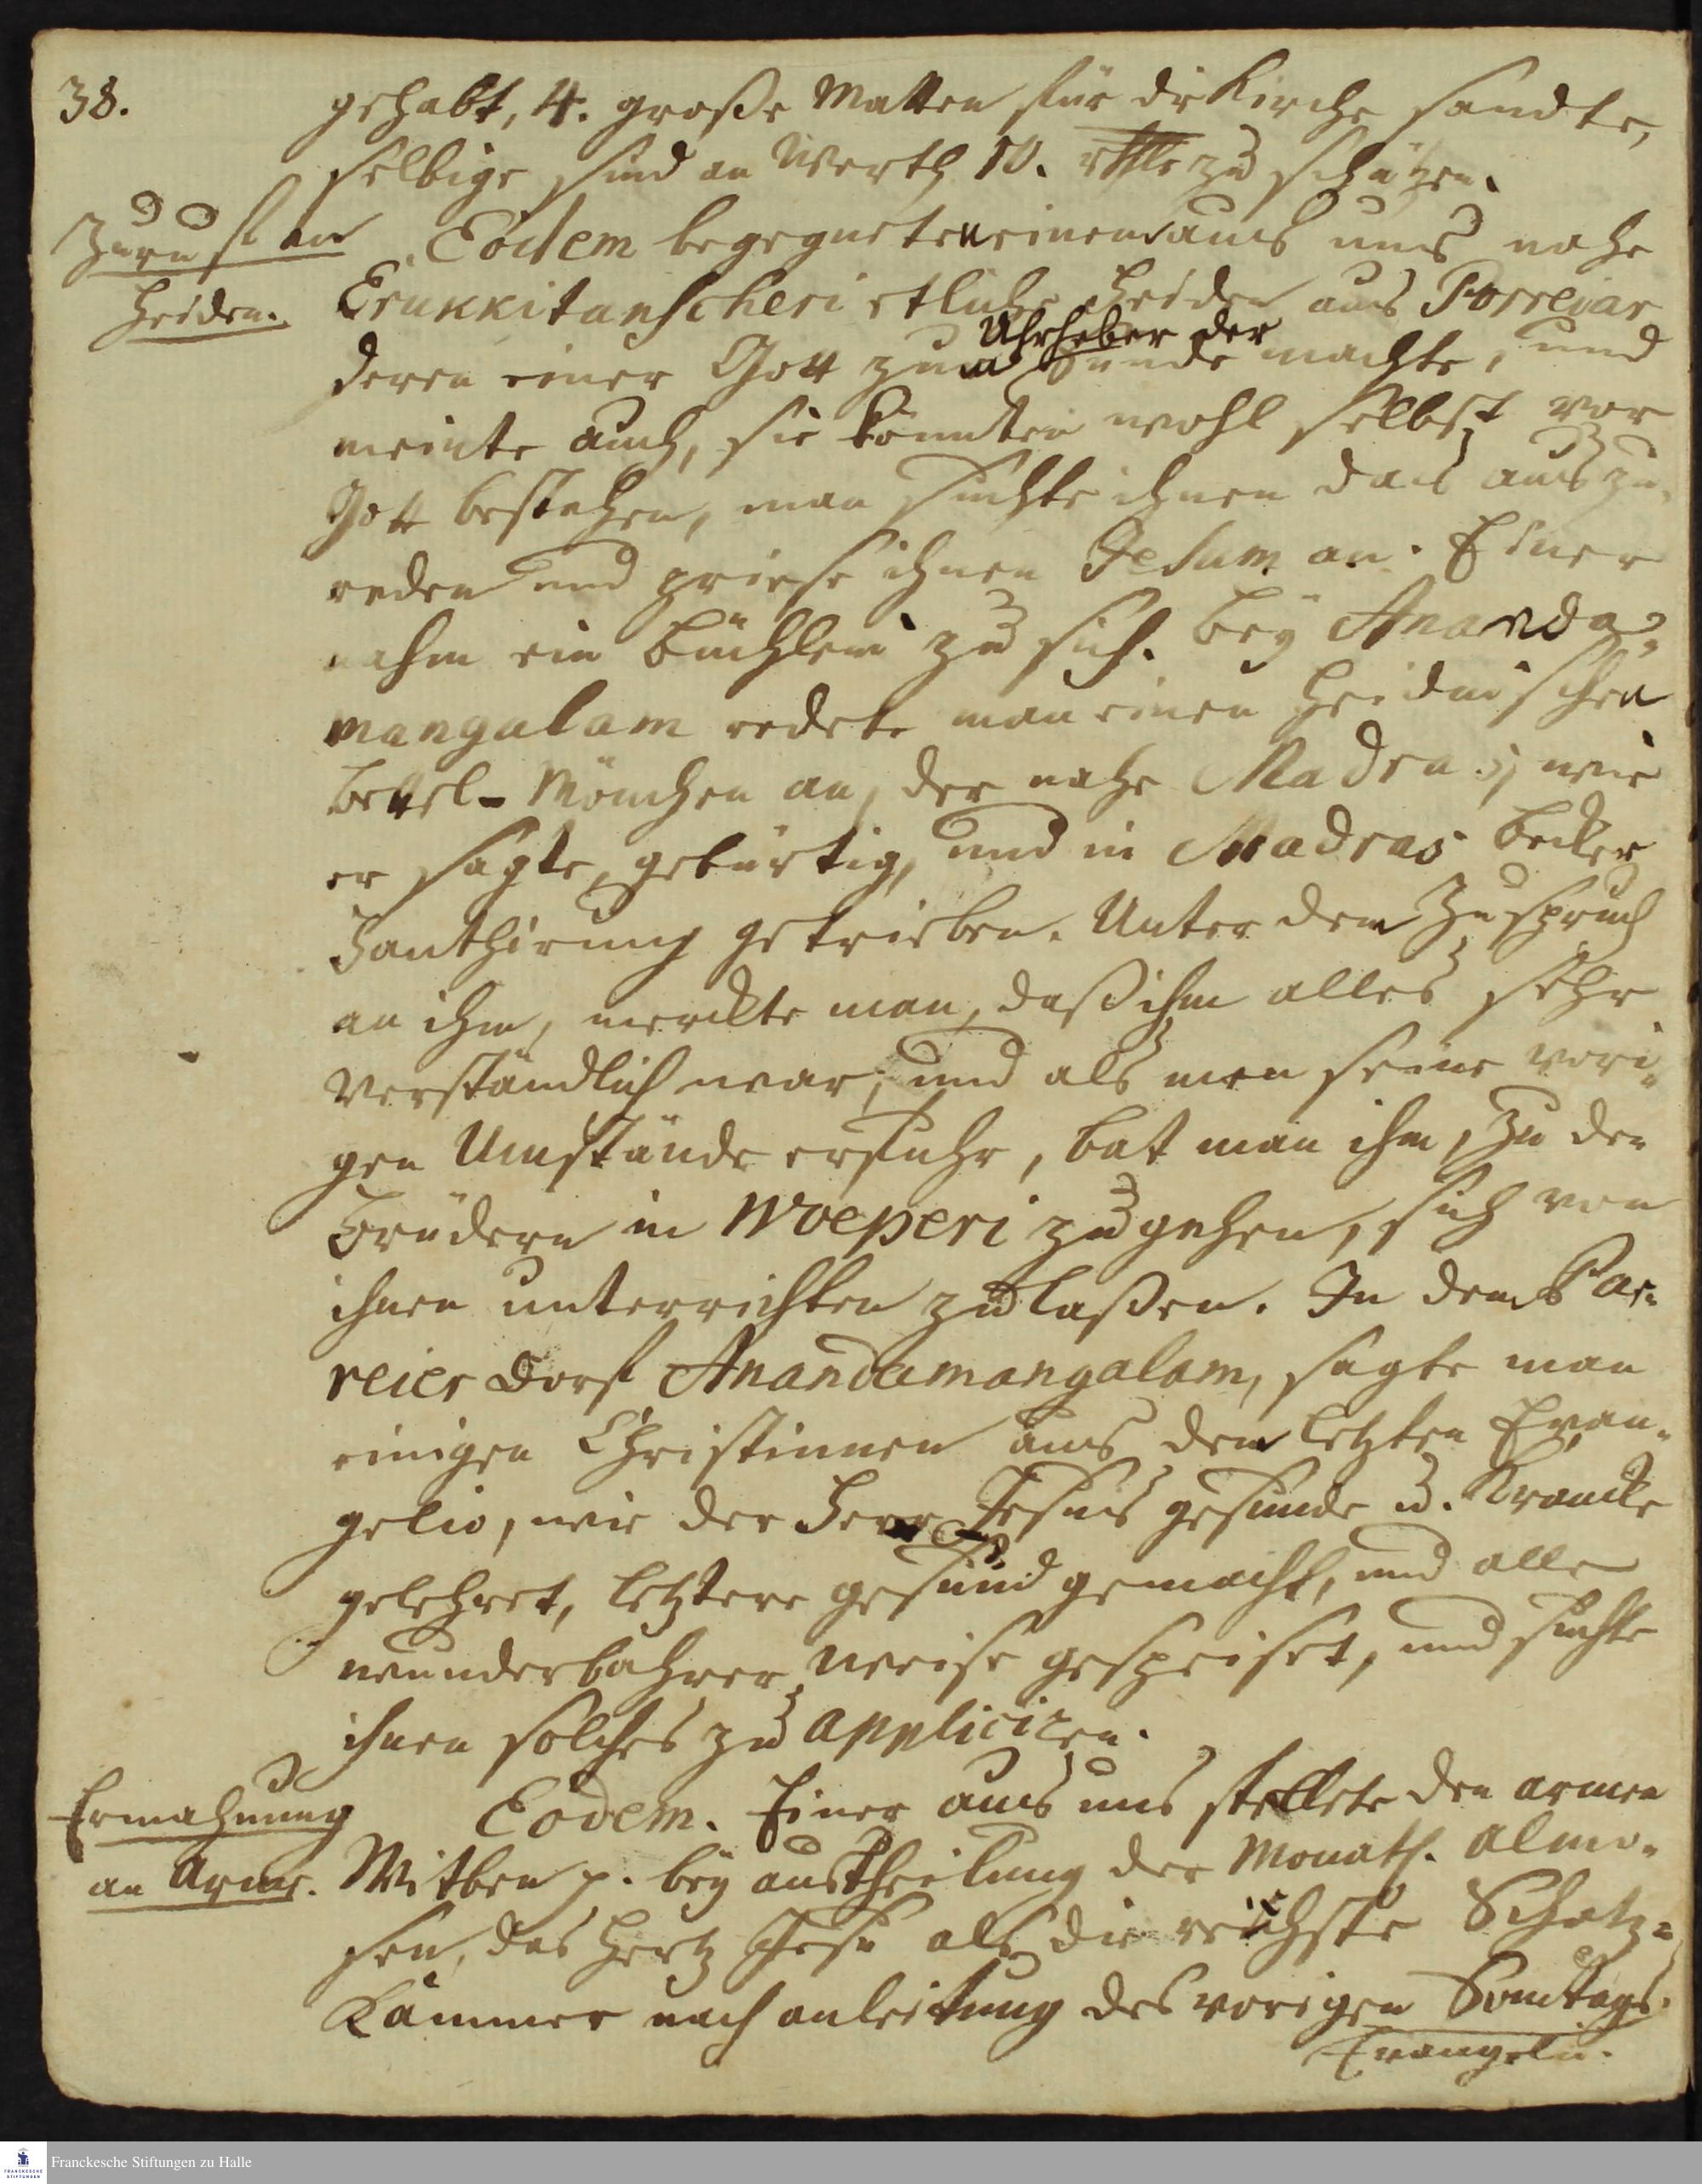 38.
gehabt, 4. große Matten für die Kirche sandte,
selbige sind an Werth 10. rthlr zu schätzen.
Zuruf an
Heiden.
Eodem begegneten einem aus uns nahe
Erukkitanscheri etliche Heiden aus Porreiar
deren einer Gott zum Uhrheber der Sünde machte, und
meinte auch, sie könnten wohl selbst vor
Gott bestehen, man suchte ihnen das auszu-
reden und priese ihnen Jesum an. Einer
nahm ein Büchlein zu sich. Bey Ananda-
mangalam redete man einen Heidnischen
Bettel-Mönchen an, der nahe Madras, wie
er sagte, gebürtig, und in Madras Becker
Handthirung getrieben. Unter dem Zuspruch
an ihm, merckte man, daß ihm alles sehr
verständlich war, und als man seine vori-
gen Umstände erfuhr, bat man ihm, zu den
Brüdern in Woeperi zu gehen, sich von
ihnen unterrichten zu laßen. In dem Par-
reier Dorf Anandamangalam, sagte man
einigen Christinnen aus dem letzten Evan-
gelio, wie der Herr Jesus gesunde u. Krancke
gelehret, letztere gesund gemacht, und alle
wunderbahrer weise gespeiset, und suchte
ihnen solches zu appliciren.
Ermahnung
an Arme.
Eodem. Einer aus uns stellete den armen
Witben p. bey austheilung der Monathl. Almo-
sen, das Hertz Jesu als die reichste Schatz-
Kammer nach anleitung des vorigen Sontags-
Evangelii.
Franckesche Stiftungen zu Halle
FRANCKESCHE
STIFTUNGEN